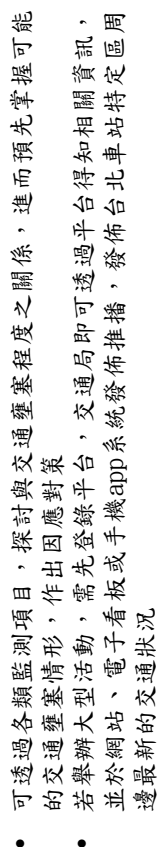 • 可透過各類監測項目，探討與交通壅塞程度之關係，進而預先掌握可能
的交通壅塞情形，作出因應對策
• 若舉辦大型活動，需先登錄平台，交通局即可透過平台得知相關資訊，
並於網站、電子看板或手機app系統發佈推播，發佈台北車站特定區周
邊最新的交通狀況